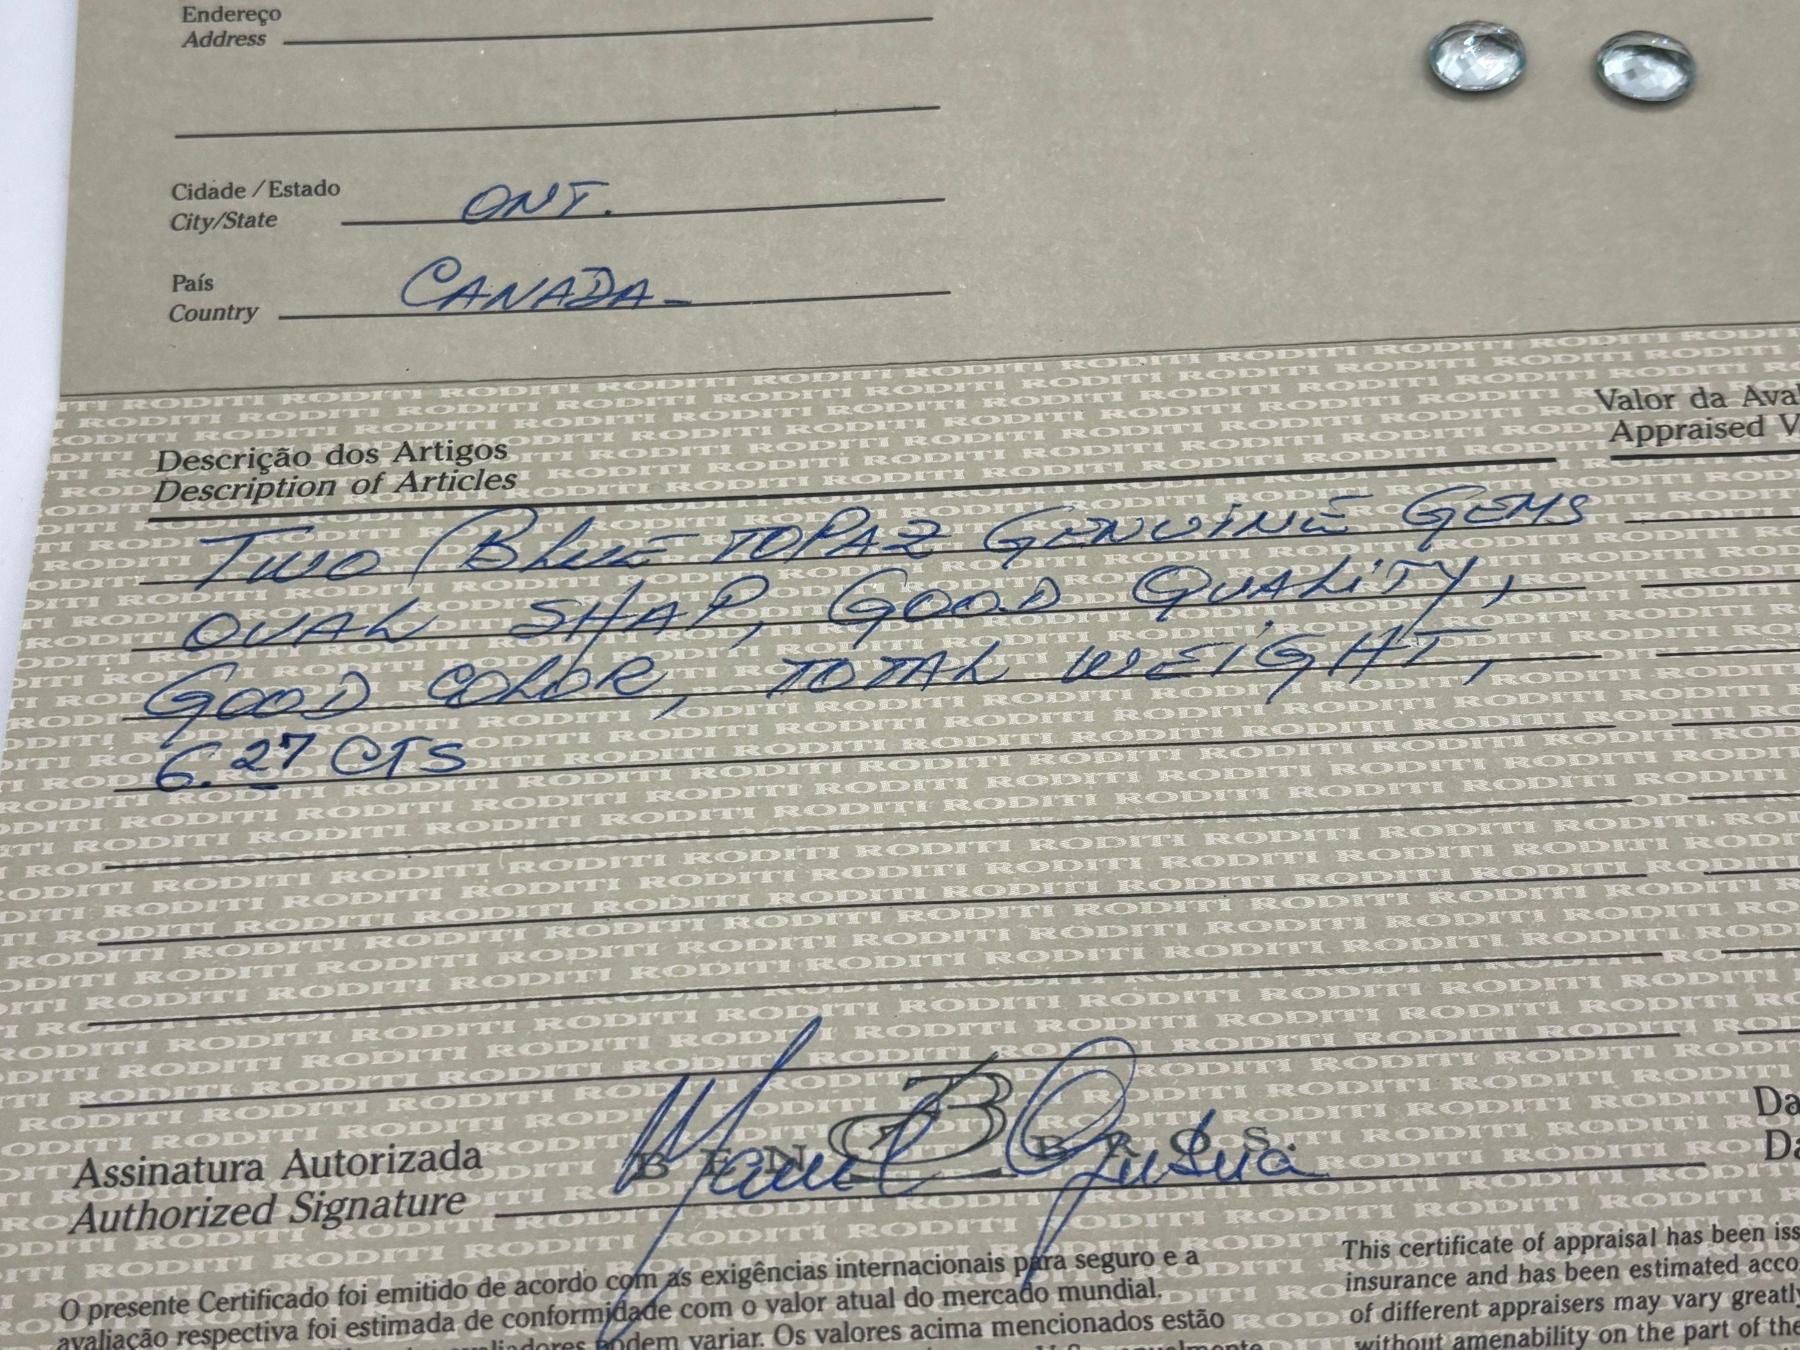 Endereço
Address
Cidade / Estado
City/State ONT.
País
Country CANADA-
RODITI RODITI RODITI RODITI RODITI RODITI RODITI
Valor da Aval
Appraised V
Descrição dos Artigos
Description of Articles
TWO BLUE TOPAZ GENUINE GEMS
OVAL SHAP, GOOD QUALITY,
GOOD COLOR, TOTAL WEIGHT,
6.27 CTS
BEN B BROS.
Da
Da
Assinatura Autorizada
Authorized Signature
O presente Certificado foi emitido de acordo com as exigências internacionais para seguro e a
avaliação respectiva foi estimada de conformidade com o valor atual do mercado mundial.
podem variar. Os valores acima mencionados estão
This certificate of appraisal has been iss
insurance and has been estimated acco
of different appraisers may vary greatly
without amenability on the part of the